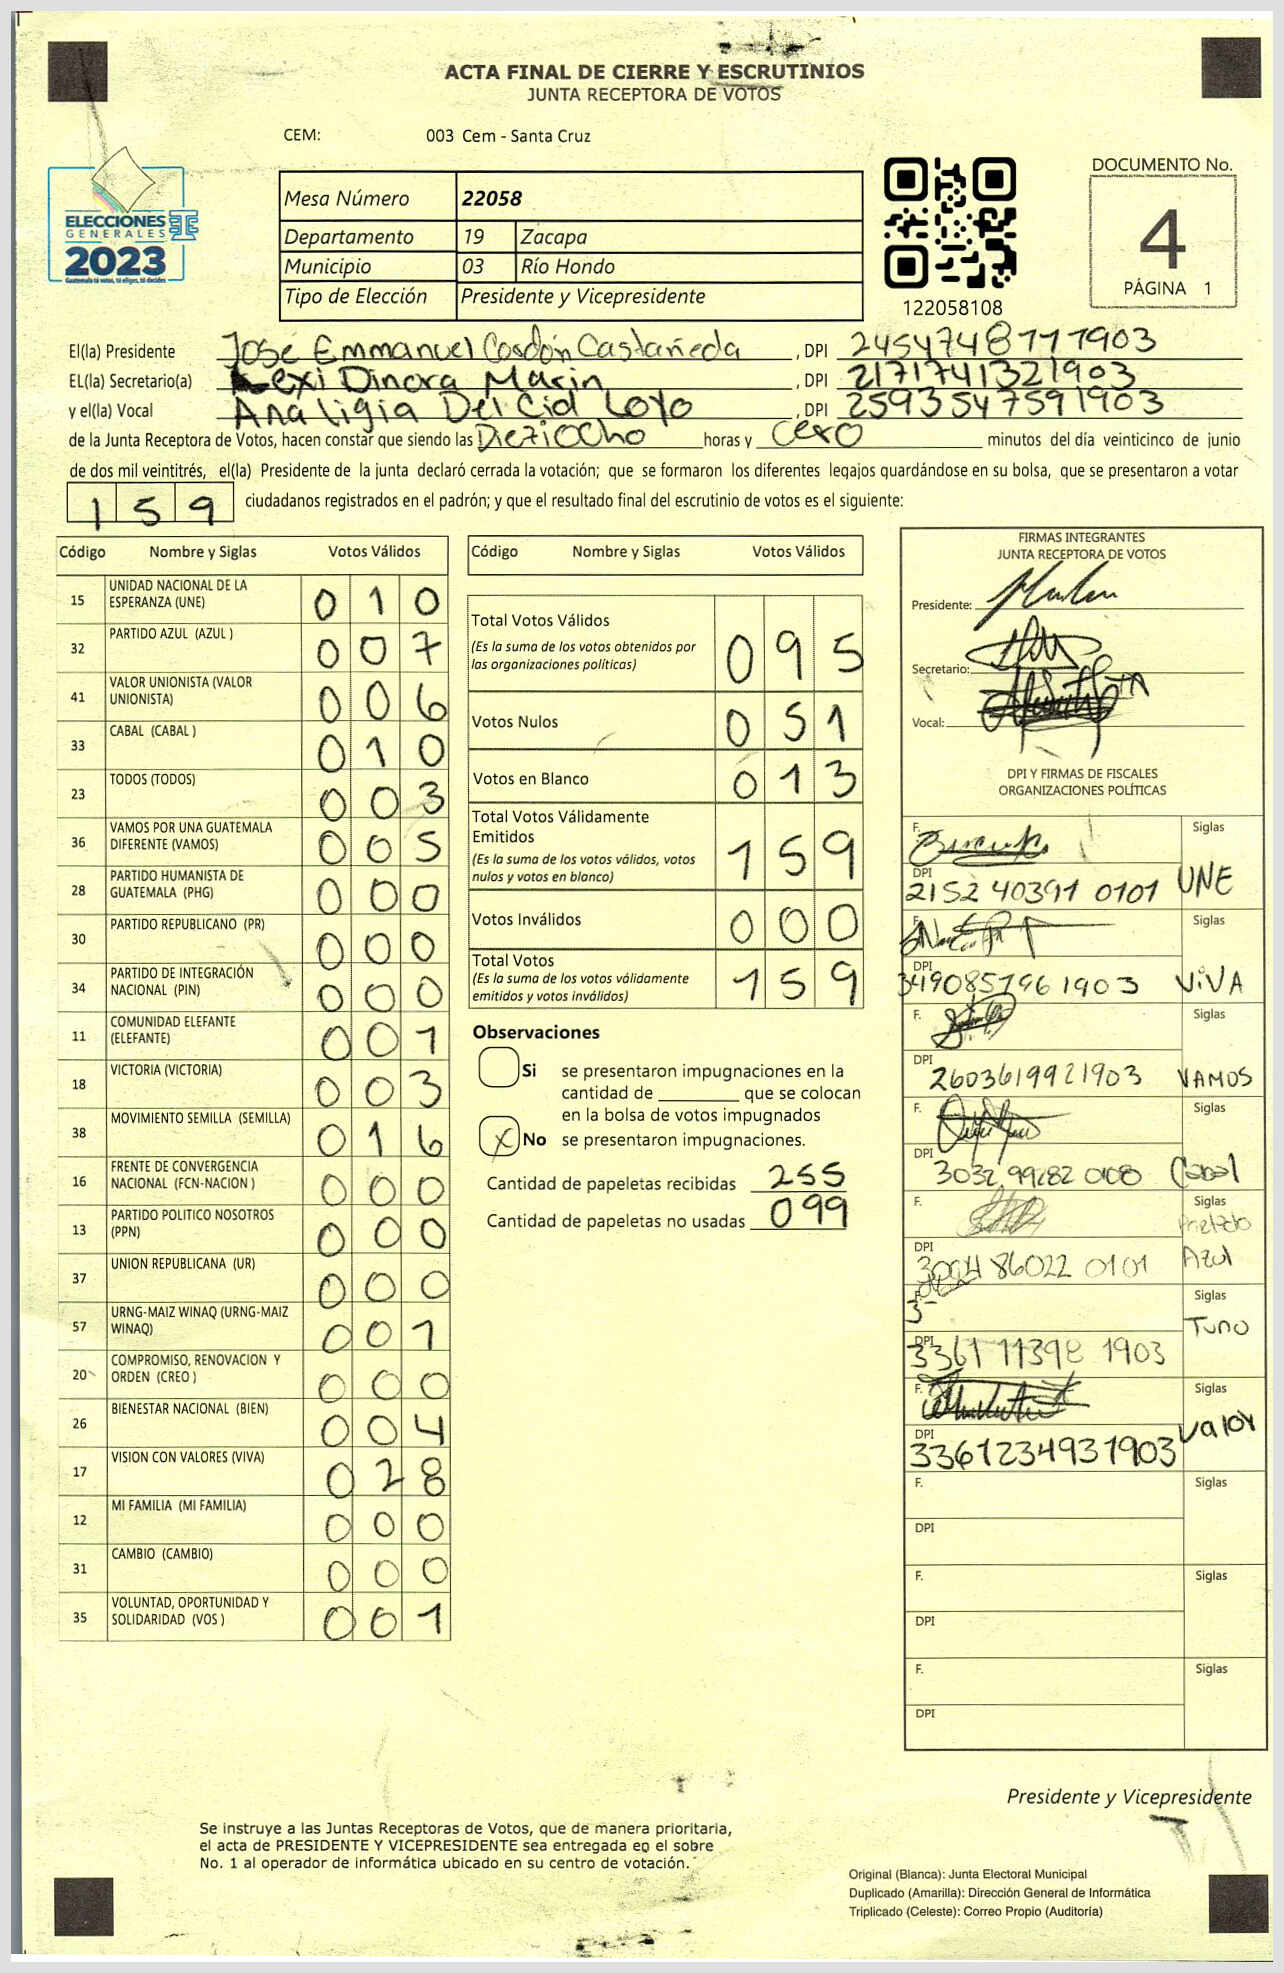 ACTA FINAL DE CIERRE Y ESCRUTINIOS
JUNTA RECEPTORA DE VOTOS
CEM: 003 Cem - Santa Cruz
ELECCIONES
GENERALES
2023
Guatemala tú votas, tú eliges, tú decides
Mesa Número 22058
Departamento 19 Zacapa
Municipio 03 Río Hondo
Tipo de Elección Presidente y Vicepresidente
122058108
DOCUMENTO No.
4
PÁGINA 1
El(la) Presidente Jose Emmanuel Cordón Castañeda, DPI
EL(la) Secretario(a) Lexi Dinora Marin, DPI 2171741321903
y el(la) Vocal Analigia Del Cid Loyo, DPI 2593547591903
de la Junta Receptora de Votos, hacen constar que siendo las Dieziocho horas y cero minutos del día veinticinco de junio
de dos mil veintitrés, el(la) Presidente de la junta declaró cerrada la votación; que se formaron los diferentes legajos quardándose en su bolsa, que se presentaron a votar
159 ciudadanos registrados en el padrón; y que el resultado final del escrutinio de votos es el siguiente:
Código Nombre y Siglas Votos Válidos
15 UNIDAD NACIONAL DE LA ESPERANZA (UNE) 010
32 PARTIDO AZUL (AZUL ) 007
41 VALOR UNIONISTA (VALOR UNIONISTA) 006
33 CABAL (CABAL ) 010
23 TODOS (TODOS) 003
36 VAMOS POR UNA GUATEMALA DIFERENTE (VAMOS) 005
28 PARTIDO HUMANISTA DE GUATEMALA (PHG) 000
30 PARTIDO REPUBLICANO (PR) 000
34 PARTIDO DE INTEGRACIÓN NACIONAL (PIN) 000
11 COMUNIDAD ELEFANTE (ELEFANTE) 001
18 VICTORIA (VICTORIA) 003
38 MOVIMIENTO SEMILLA (SEMILLA) 016
16 FRENTE DE CONVERGENCIA NACIONAL (FCN-NACION ) 000
13 PARTIDO POLITICO NOSOTROS (PPN) 000
37 UNION REPUBLICANA (UR) 000
57 URNG-MAIZ WINAQ (URNG-MAIZ WINAQ) 001
20 COMPROMISO, RENOVACION Y ORDEN (CREO ) 000
26 BIENESTAR NACIONAL (BIEN) 004
17 VISION CON VALORES (VIVA) 028
12 MI FAMILIA (MI FAMILIA) 000
31 CAMBIO (CAMBIO) 000
35 VOLUNTAD, OPORTUNIDAD Y SOLIDARIDAD (VOS ) 001
Código Nombre y Siglas Votos Válidos
Total Votos Válidos 095
(Es la suma de los votos obtenidos por
las organizaciones políticas)
Votos Nulos 051
Votos en Blanco 013
Total Votos Válidamente
Emitidos 159
(Es la suma de los votos válidos, votos
nulos y votos en blanco)
Votos Inválidos 000
Total Votos 159
(Es la suma de los votos válidamente
emitidos y votos inválidos)
Observaciones
Si se presentaron impugnaciones en la
cantidad de ________ que se colocan
en la bolsa de votos impugnados
X No se presentaron impugnaciones.
Cantidad de papeletas recibidas 255
Cantidad de papeletas no usadas 099
FIRMAS INTEGRANTES
JUNTA RECEPTORA DE VOTOS
Presidente:
Secretario:
Vocal:
DPI Y FIRMAS DE FISCALES
ORGANIZACIONES POLÍTICAS
F. Siglas
DPI
2152 40391 0101 UNE
F. Siglas
DPI
VIVA
F. Siglas
DPI
2603619921903 VAMOS
F. Siglas
DPI
3032 99282 0108 Cabal
F. Siglas
Partido
DPI
3004 86022 0101 Azul
F. Siglas
DPI
3361 11398 1903
F. Siglas
DPI
3361234931903 Valor
F. Siglas
DPI
F. Siglas
DPI
F. Siglas
DPI
Presidente y Vicepresidente
Se instruye a las Juntas Receptoras de Votos, que de manera prioritaria,
el acta de PRESIDENTE Y VICEPRESIDENTE sea entregada en el sobre
No. 1 al operador de informática ubicado en su centro de votación.
Original (Blanca): Junta Electoral Municipal
Duplicado (Amarilla): Dirección General de Informática
Triplicado (Celeste): Correo Propio (Auditoría)